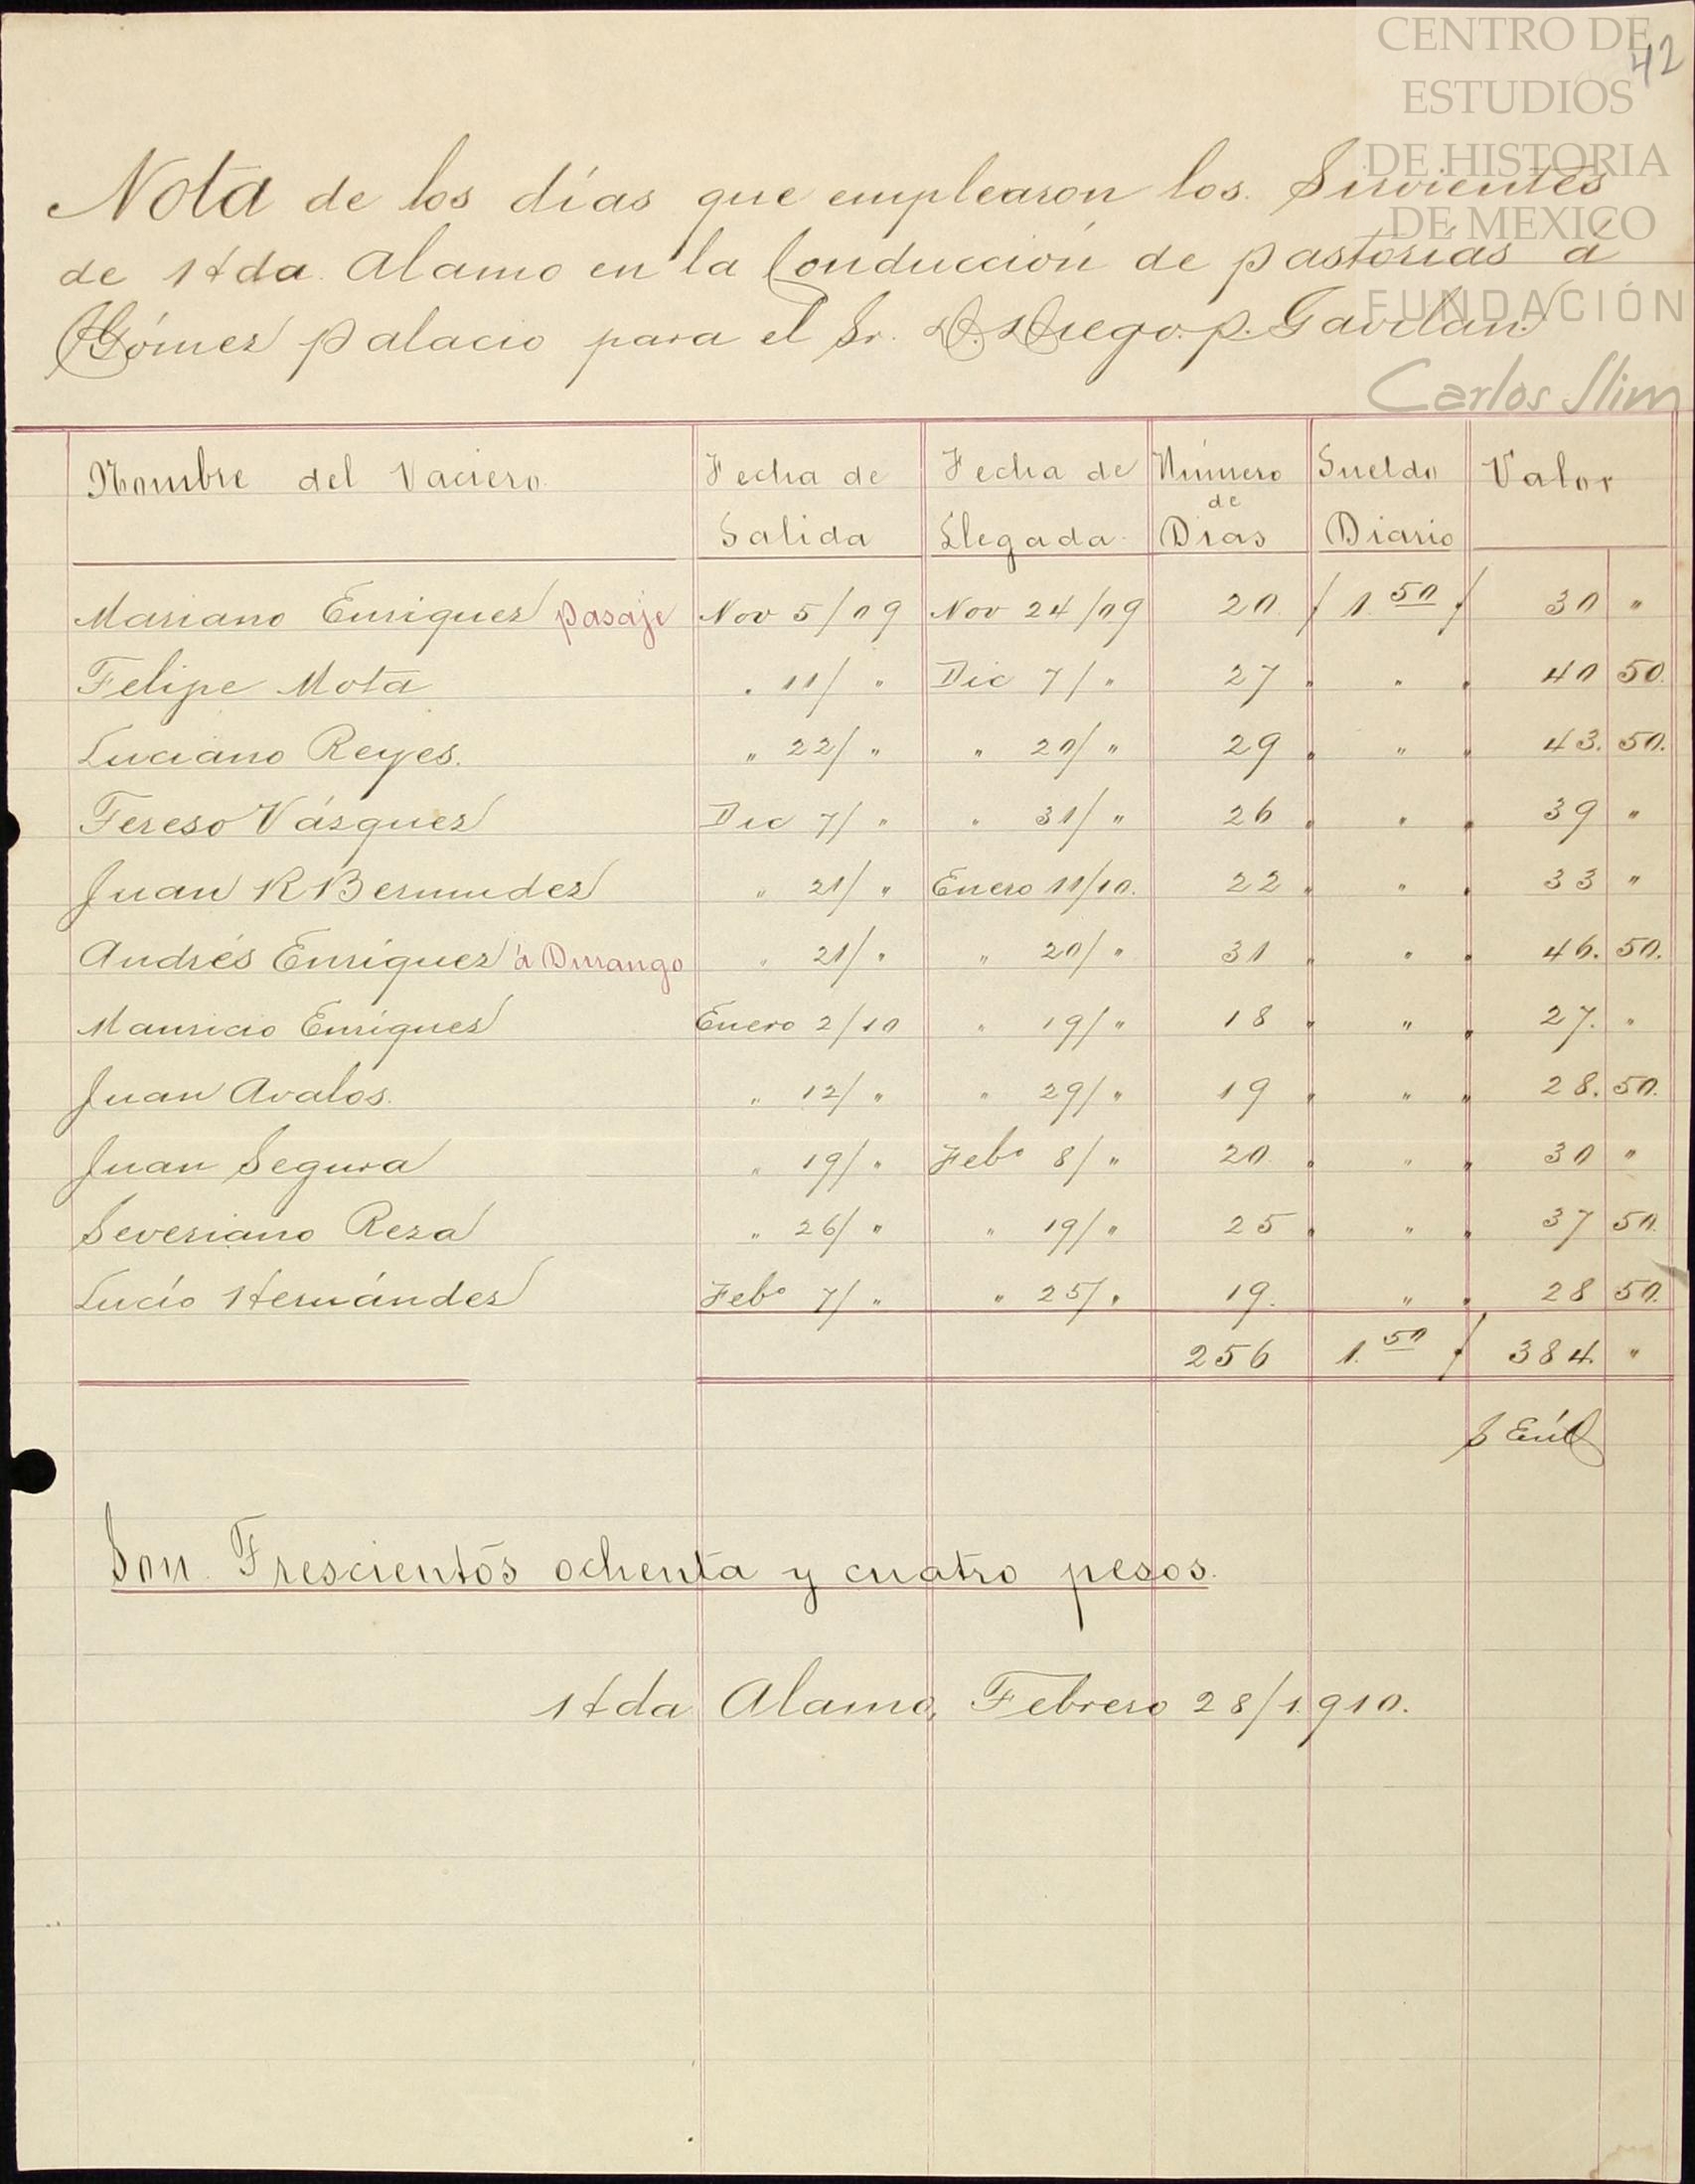 CENTRO DE
ESTUDIOS
DE HISTORIA
DE MEXICO
FUNDACIÓN
Carlos Slim
42
Nota de los días que emplearon los. Sirvientes
de Hda. Alamo en la Conducción de pastorías á
Gómez Palacio para el Sr. D. Diego. P. Gavilan.
Nombre del Vaciero. Fecha de Salida Fecha de Llegada. Número de Dias Sueldo Diario Valor
Mariano Enriquez pasaje Nov 5/09 Nov 24/09 20. $ 1.50 $ 30 "
Felipe Mota " 11/ " Dic 7/ " 27 " " " 40 50.
Luciano Reyes. " 22/ " " 20/ " 29 " " " 43. 50.
Tereso Vázquez Dic 7/ " " 31/ " 26 " " " 39 "
Juan R Bermudez " 21/ " Enero 11/10. 22 " " " 33 "
Andrés Enríquez á Durango " 21/ " " 20/ " 31 " " " 46. 50.
Mauricio Enríquez Enero 2/10 " 19/ " 18 " " " 27. "
Juan Avalos. " 12/ " " 29/ " 19 " " " 28. 50.
Juan Segura " 19/ " Febo 8/ " 20 " " " 30 "
Severiano Reza " 26/ " " 19/ " 25 " " " 37 50.
Lucío Hernández Febo 7/ " " 25/ " 19. " " 28 50.
256 1.50 $ 384. "
Son. Trescientos ochenta y cuatro pesos.
Hda Alamo, Febrero 28/1910.